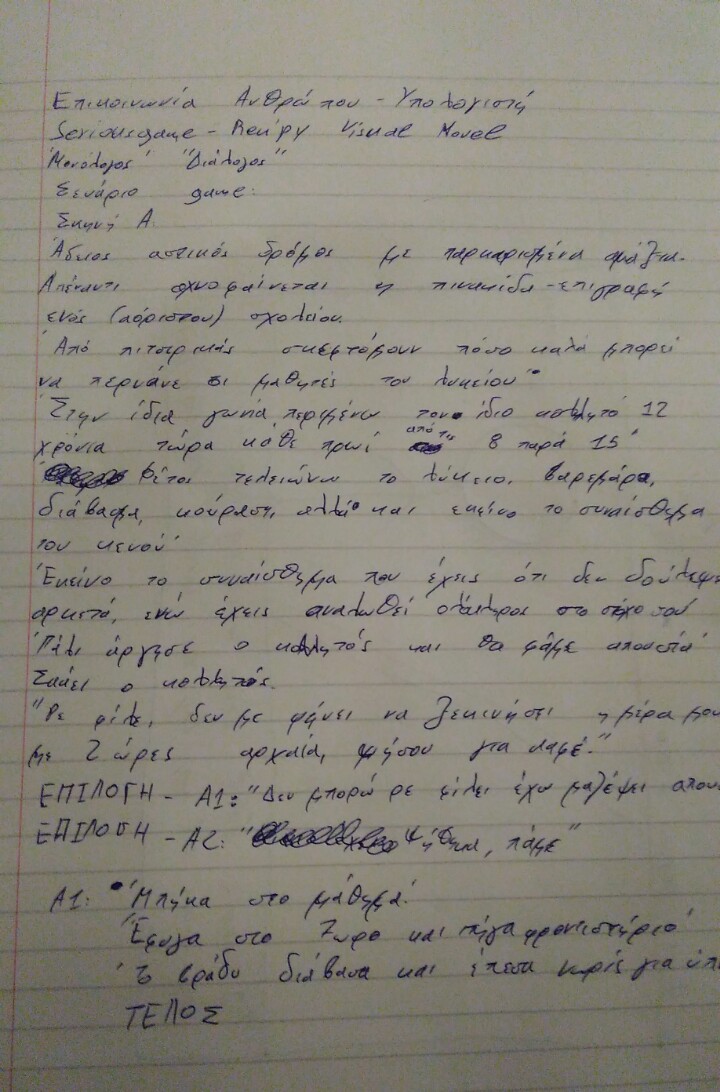 Επικοινωνία Ανθρώπου - Υπολογιστή
Serious game - Ren'py Visual Novel
'Μονόλογος' "Διάλογος"
Σενάριο game:
Σκηνή Α:
Άδειος αστικός δρόμος με παρκαρισμένα αμάξια.
Απέναντι αχνοφαίνεται η πινακίδα-επιγραφή
ενός (αόριστου) σχολείου.
'Από πιτσιρικάς σκεφτόμουν πόσο καλά μπορεί
να περνάνε οι μαθητές του λυκείου'
'Στην ίδια γωνία περιμένω τον ίδιο κολλητό 12
χρόνια τώρα κάθε πρωί από τις 8 παρά 15'
'Φέτος τελειώνω το λύκειο, βαρεμάρα,
διάβασμα, κούραση, αλλά και εκείνο το συναίσθημα
του κενού'
'Εκείνο το συναίσθημα που έχεις ότι δεν δούλεψες
αρκετά, ενώ έχεις αναλωθεί ολόκληρος στο στόχο σου'
'Πάλι άργησε ο κολλητός και θα φάμε απουσία'
Σκάει ο κολλητός.
"Ρε φίλε, δεν με ψήνει να ξεκινήσει η μέρα μου
με 2 ώρες αρχαία, ψήσου για καφέ."
ΕΠΙΛΟΓΗ - Α1: "Δεν μπορώ ρε φίλε, έχω μαζέψει
ΕΠΙΛΟΓΗ - Α2: "Ψήθηκα, πάμε"
Α1: 'Μπήκα στο μάθημα'
'Έφυγα στο 7ωρο και πήγα φροντιστήριο'
'Το βράδυ διάβασα και έπεσα νωρίς για
ΤΕΛΟΣ